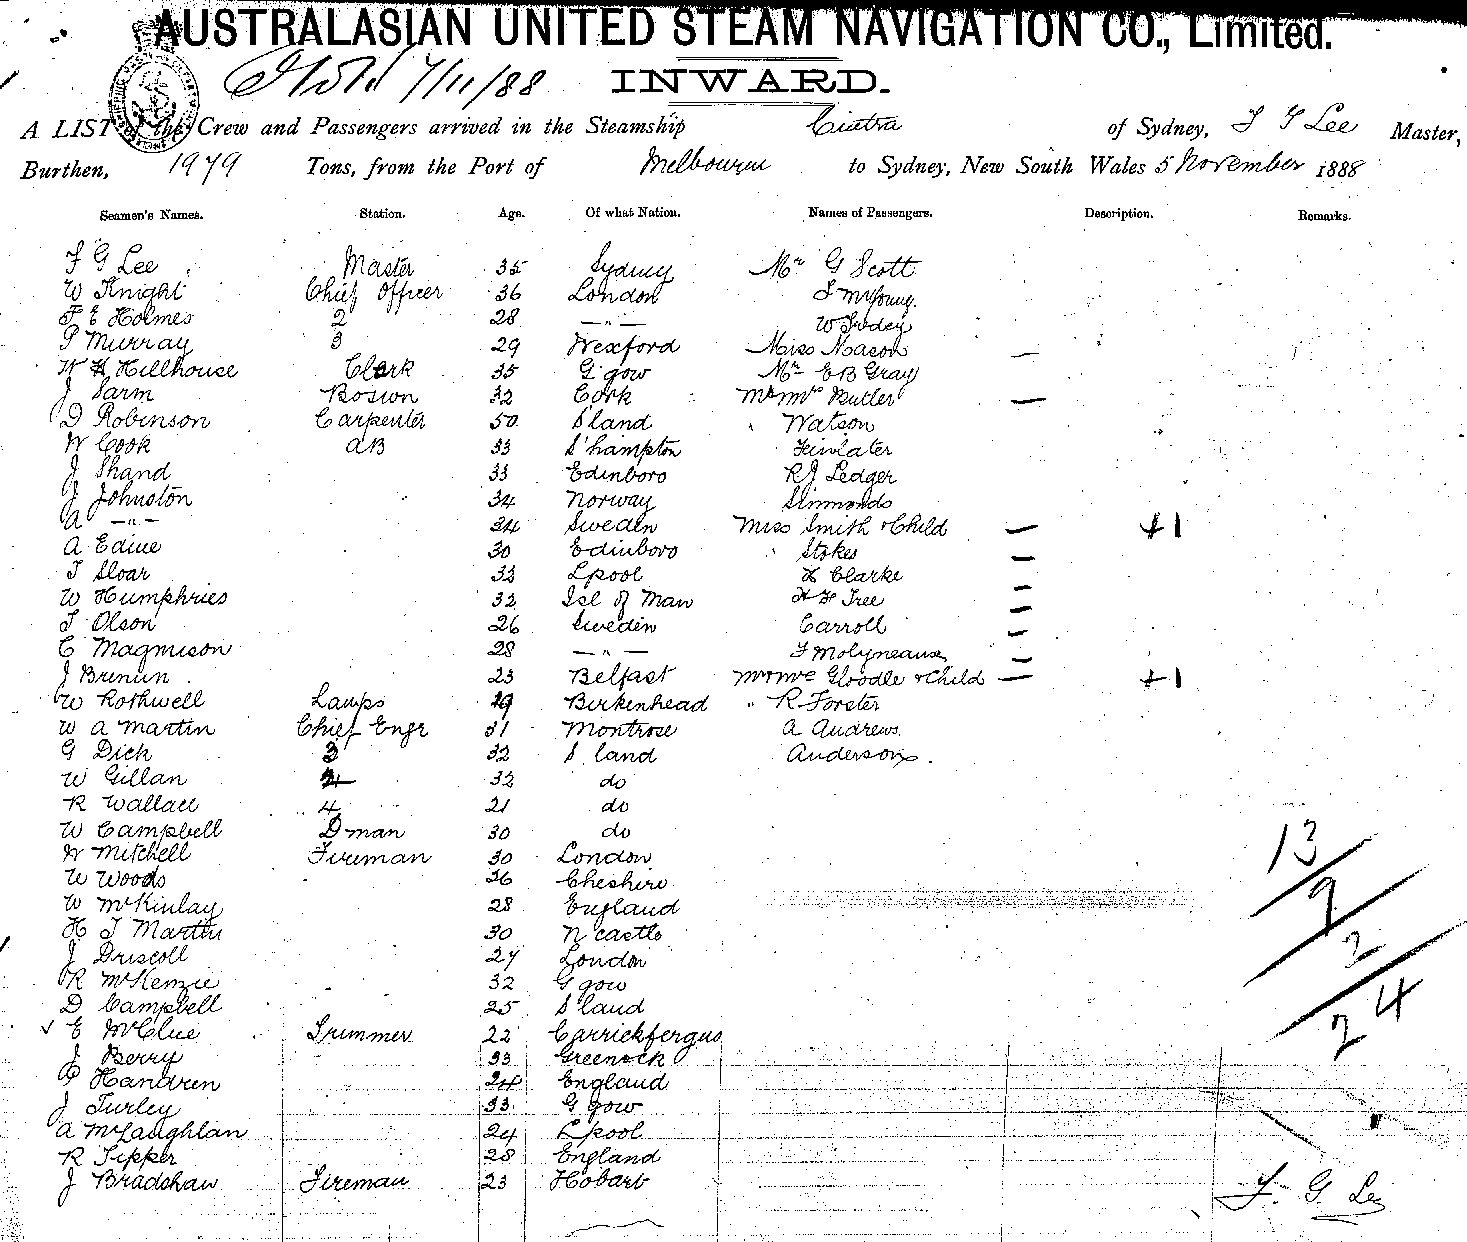 AUSTRALASIAN UNITED STEAM NAVIGATION CO., Limited.
7/11/88 INWARD.
A LIST of the Crew and Passengers arrived in the Steamship of Sydney, Lee Master,
Burthen, 1979 Tons, from the Port of Melbourne to Sydney, New South Wales 5 November 1888
Seamen's Names. Station. Age. Of what Nation. Names of Passengers. Description. Remarks.
F G Lee Master 35 Sydney Mr G Scott
W Knight Chief Officer 36 London
F E Holmes 2 28 — " —
P Murray 3 29 Wexford Miss Mason —
W H Hillhouse Clerk 35 G'gow Mr E B Gray
J Sarm Bosion 32 Cork Mr & Mrs Butler —
D Robinson Carpenter 50 S'land Watson
W Cook AB 33 S'hampton
J Shand 33 Edinboro R J Ledger
J Johnston 34 Norway Simmonds
A — " — 24 Sweden Miss Smith & Child — +1
A Edive 30 Edinboro Stokes —
T Sloar 33 Lpool H Clarke —
W Humphries 32 Isl of Man Tree —
T Olson 26 Sweden Carroll —
C Magnuson 28 — " — Molyneaux —
J 23 Belfast & Child — +1
W Rothwell Lamps 19 Birkenhead " R Forster
W A Martin Chief Engr 31 Montrose A Andrews
G Dick 3 32 S'land Anderson
W Gillan 32 do
R Wallace 4 21 do
W Campbell Dman 30 do 13
W Mitchell Fireman 30 London
W Woods 26 Cheshire 9
W McKinlay 28 England
H J Martin 30 N'castle 2
J Driscoll 27 London
R McKenzie 32 G'gow 24
D Campbell 25 S'land
E McClue Trimmer 22 Carrickfergus
J Berry 33 Greenock
P Handren 24 England
J Turley 33 G'gow
A McLaughlan 24 Lpool
R Tipper 28 England
J Bradshaw Fireman 23 Hobart F. G. Lee